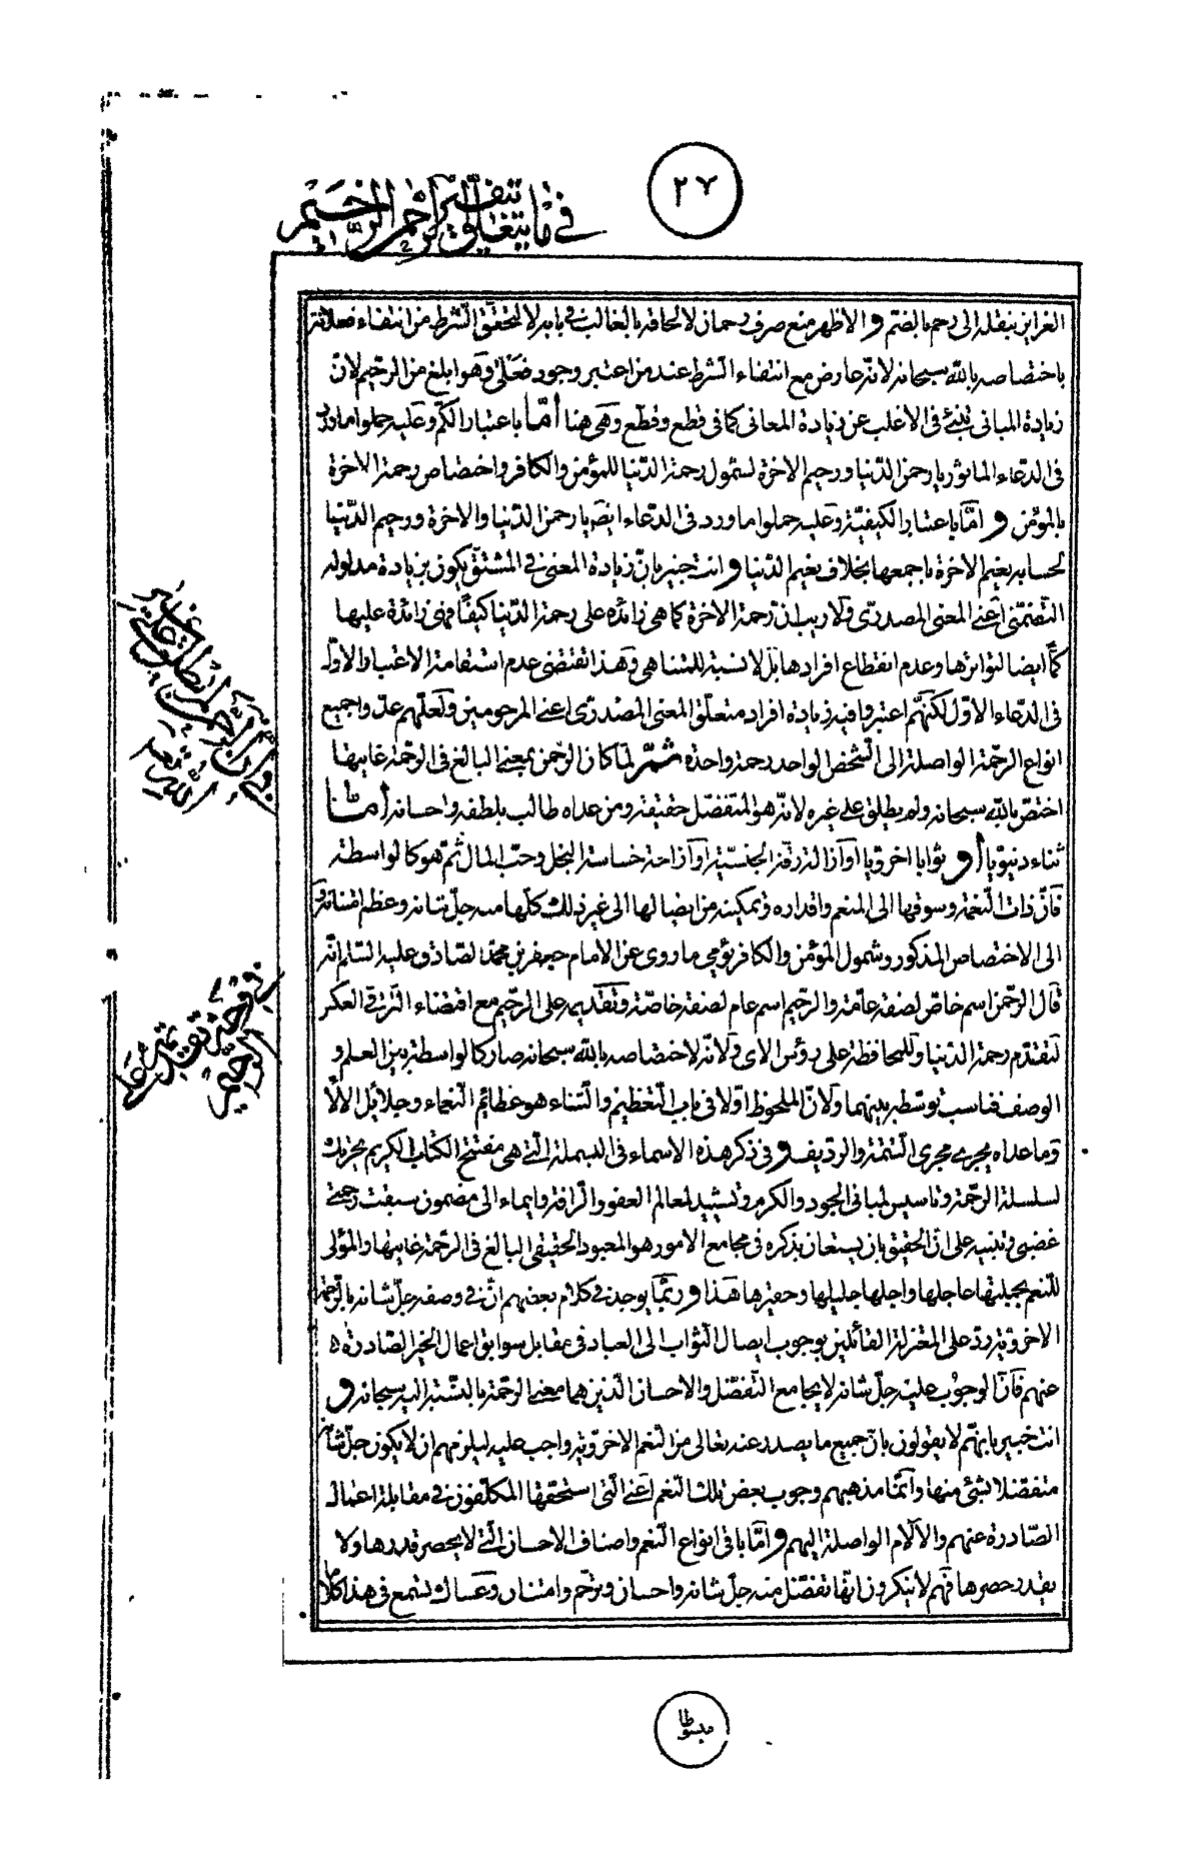 ٢٧
في ما يتعلق بتفسير الرحمن الرحيم
الغرايز بنقله الى رحم بالضم والاظهر منع صرف رحمان لالحاقه بالغالب في بابه لا لتحقق الشرط من انتفاء فعلانة
باختصاصه بالله سبحانه لانه عارض مع انتفاء الشرط عند من اعتبر وجود فعلى وهو ابلغ من الرحيم لان
زيادة المباني تنبئ في الاغلب عن زيادة المعاني كما في قطع وقطّع وهي هنا أمّا باعتبار الكم وعليه حملوا ما ورد
في الدعاء الماثور يا رحمن الدنيا ورحيم الاخرة لشمول رحمة الدنيا للمؤمن والكافر واختصاص رحمة الاخرة
بالمؤمن وامّا باعتبار الكيفيّة وعليه حملوا ما ورد في الدعاء ايضَ يا رحمن الدنيا والاخرة ورحيم الدنيا
لجسامة نعيم الاخرة باجمعها بخلاف نعيم الدنيا وانت خبير بانّ زيادة المعنى في المشتق يكون بزيادة مدلوله
التضمّني اعني المعنى المصدري ولا ريب ان رحمة الاخرة كما هي زائدة على رحمة الدنيا كيفًا فهي زائدة عليها
كمًّا ايضا لتواترها وعدم انقطاع افرادها بل لا نسبة للمتناهي وهذا تقتضي عدم استقامة الاعتبار الاول
في الدعاء الاوّل لكنّهم اعتبروا فيه زيادة افراد متعلّق المعنى المصدري اعني المرحومين ولعلهم عدّوا جميع
انواع الرحمة الواصلة الى الشخص الواحد رحمة واحدة ثمّ لما كان الرحمن بمعنى البالغ في الرحمة غايتها
اختص بالله سبحانه ولم يطلق على غيره لانه هو المتفضّل حقيقة ومن عداه طالب بلطفه واحسانه أمّا
ثناء دنيويا أو ثوابا اخرويا او آزالة رقة الجنسيّة او آزاحة خساسة البخل وحبّ المال ثم هو كالواسطة
فانّ ذات النعمة وسوقها الى المنعم واقداره وتمكينه من ايصالها الى غير ذلك كلّها منه جلّ شانه وعظم امتنانه و
الى الاختصاص المذكور وشمول المؤمن والكافر يؤمي ما روي عن الامام جعفر بن محمد الصادق عليه السّلم انّه
قال الرّحمن اسم خاصّ لصفة عامّة والرحيم اسم عام لصفة خاصّة وتقديمه على الرّحيم مع اقتضاء الترقي العكس
لتقدّم رحمة الدنيا وللمحافظة على رؤس الآي ولانّه لاختصاصه بالله سبحانه صار كالواسطة بين العلم و
الوصف فناسب توسّطه بينهما ولانّ الملحوظ اوّلا في باب التعظيم والثناء هو عظائم النعماء وجلائل الآلاء
وما عداه يجري مجرى التتمة والرديف وفي ذكر هذه الاسماء في البسملة التي هي مفتتح الكتاب الكريم تحريك
لسلسلة الرحمة وتاسيس لمباني الجود والكرم وتشييد لمعالم العفو والرافة وايماء الى مضمون سبقت رحمتي
غضبي وتنبيه على انّ الحقيق بان يستعان بذكره في مجامع الامور هو المعبود الحقيقي البالغ في الرحمة غايتها والمؤلي
للنعم بجملتها عاجلها واجلها جليلها وحقيرها هذا وربّما يوجد في كلام بعضهم انّ في وصفه جلّ شانه بالرّحمة
الاخرويّة ردّ على المعتزلة القائلين بوجوب ايصال الثواب الى العباد في مقابل سوابق اعمال الخير الصّادرة
عنهم فانّ الوجوب عليه جلّ شانه لا يجامع التفضّل والاحسان الّذين هما معنى الرحمة بالنسبة اليه سبحانه و
انت خبير بانهم لا يقولون بانّ جميع ما يصدر عنه تعالى من النعم الاخرويّة واجب عليه ليلزمهم ان لا يكون جلّ شانه
متفضّلا بشئ منها وانّما مذهبهم وجوب بعض تلك النعم اعني التي استحقها المكلّفون في مقابلة اعمال
الصّادرة عنهم والآلام الواصلة اليهم وامّا باقي انواع النعم واصناف الاحسان التي لا يحصر قدرها ولا
يقدر حصرها فهم لا ينكرون انّها تفضّل منه جلّ شانه واحسان وترحّم وامتنان وعساك تسمع في هذا كلاما
في انّ الرحمن لا يطلق على غير
الله تعالى
في وجه تقديم
الرحمن على
الرحيم
مبسوطا